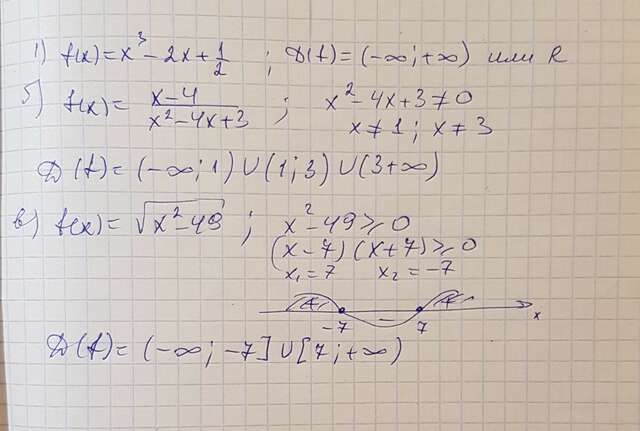 1) f(x)=x³-2x+1/2 ; D(f)=(-∞;+∞) или R
б) f(x)= (x-4)/(x²-4x+3) ; x²-4x+3≠0
x≠1 ; x≠3
D(f)=(-∞;1)∪(1;3)∪(3+∞)
в) f(x)=√(x²-49) ; x²-49≥0
(x-7)(x+7)≥0
x₁=7 x₂=-7
+ - +
-7 7 x
D(f)=(-∞;-7]∪[7;+∞)